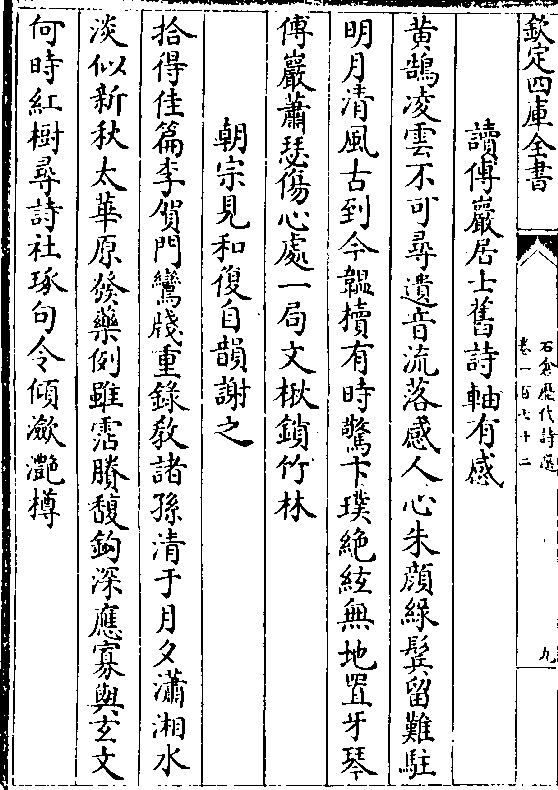 欽定四庫全書
石倉歷代詩選
卷一百七十二
九
讀傅巖居士舊詩軸有感
黃鵠凌雲不可尋遺音流落感人心朱顔緑鬂留難駐
明月清風古到今韞櫝有時驚卞璞絶絃無地置牙琴
傅巖蕭瑟傷心處一局文楸鎖竹林
朝宗見和復自韻謝之
拾得佳篇李賀門鸞牋重錄教諸孫清于月夕瀟湘水
淡似新秋太華原發藥例雖霑賸馥鈎深應寡與玄文
何時紅樹尋詩社琢句令傾瀲灔樽